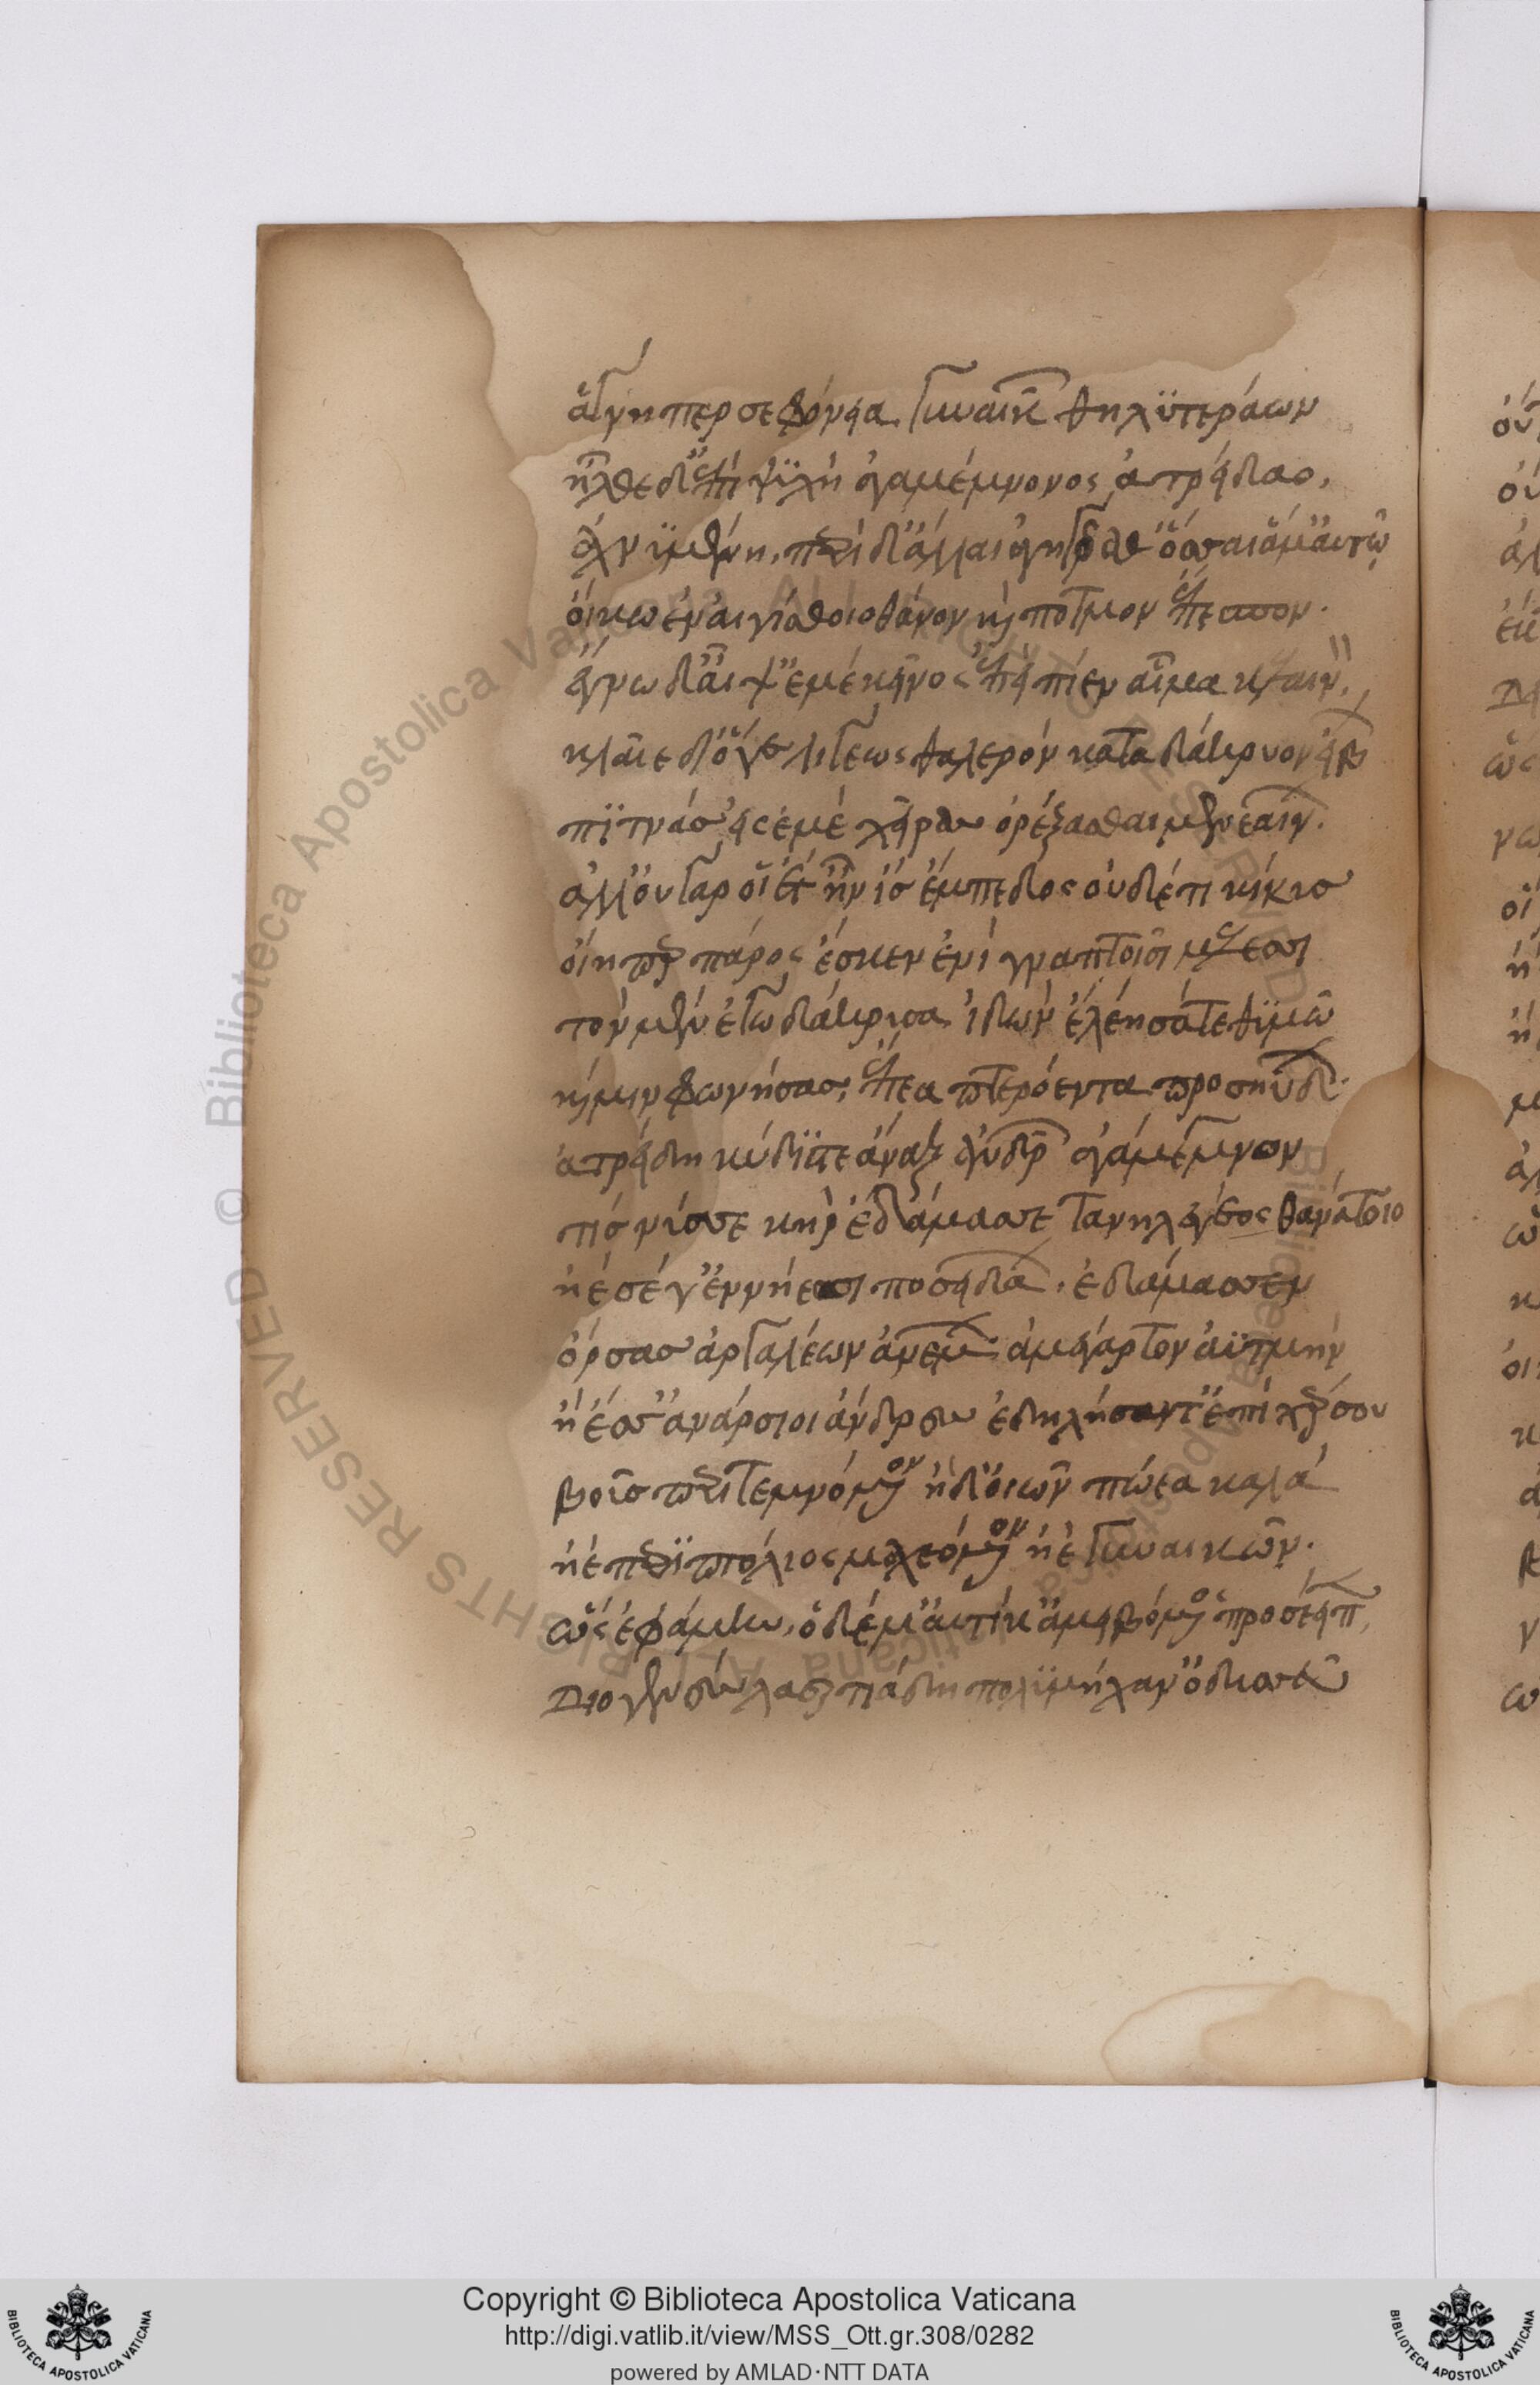 ἁγνὴ περσεφόνεια γυναικῶν θηλυτεράων
ἦλθε δ' ἐπὶ ψυχὴ ἀγαμέμνονος ἀτρείδαο,
ἀχνυμένη, περὶ δ' ἄλλαι ἀγηγέραθ' ὅσσαι ἅμ' αὐτῶ
οἴκω ἐν αἰγίσθοιο θάνον καὶ πότμον ἐπέσπον.
ἔγνω δ' αἶψ' ἐμὲ κεῖνος ἐπεὶ πίεν αἷμα κελαινόν,
κλαῖε δ' ὅγε λιγέως θαλερὸν κατὰ δάκρυον εἴβων
πιτνὰς εἰς ἐμὲ χεῖρας ὀρέξασθαι μενεαίνων.
ἀλλ' οὐ γάρ οἱ ἔτ' ἦν ἲς ἔμπεδος οὐδέ τι κίκυς
οἵη περ πάρος ἔσκεν ἐνὶ γναμπτοῖσι μέλεσσι
τὸν μὲν ἐγὼ δάκρυσα ἰδὼν ἐλέησά τε θυμῶ
καί μιν φωνήσας, ἔπεα πτερόεντα προσηύδων.
ἀτρείδη κύδιστε ἄναξ ἀνδρῶν ἀγάμεμνον
τίς νύ σε κὴρ ἐδάμασσε τανηλεγέος θανάτοιο
ἠὲ σέ γ' ἐν νήεσσι ποσειδάων ἐδάμασσεν
ὄρσας ἀργαλέων ἀνέμων ἀμέγαρτον ἀϋτμὴν
ἠέ σ' ἀνάρσιοι ἄνδρες ἐδηλήσαντ' ἐπὶ χέρσου
βοῦς περιτεμνόμενον ἠδ' οἰῶν πώεα καλὰ
ἠὲ περὶ πτόλιος μαχεόμενον ἠὲ γυναικῶν.
ὣς ἐφάμην, ὁ δέ μ' αὐτίκ' ἀμειβόμενος προσέειπε,
Διογενὲς λαερτιάδη πολυμήχαν' ὀδυσσεῦ
Copyright © Biblioteca Apostolica Vaticana
http://digi.vatlib.it/view/MSS_Ott.gr.308/0282
powered by AMLAD·NTT DATA